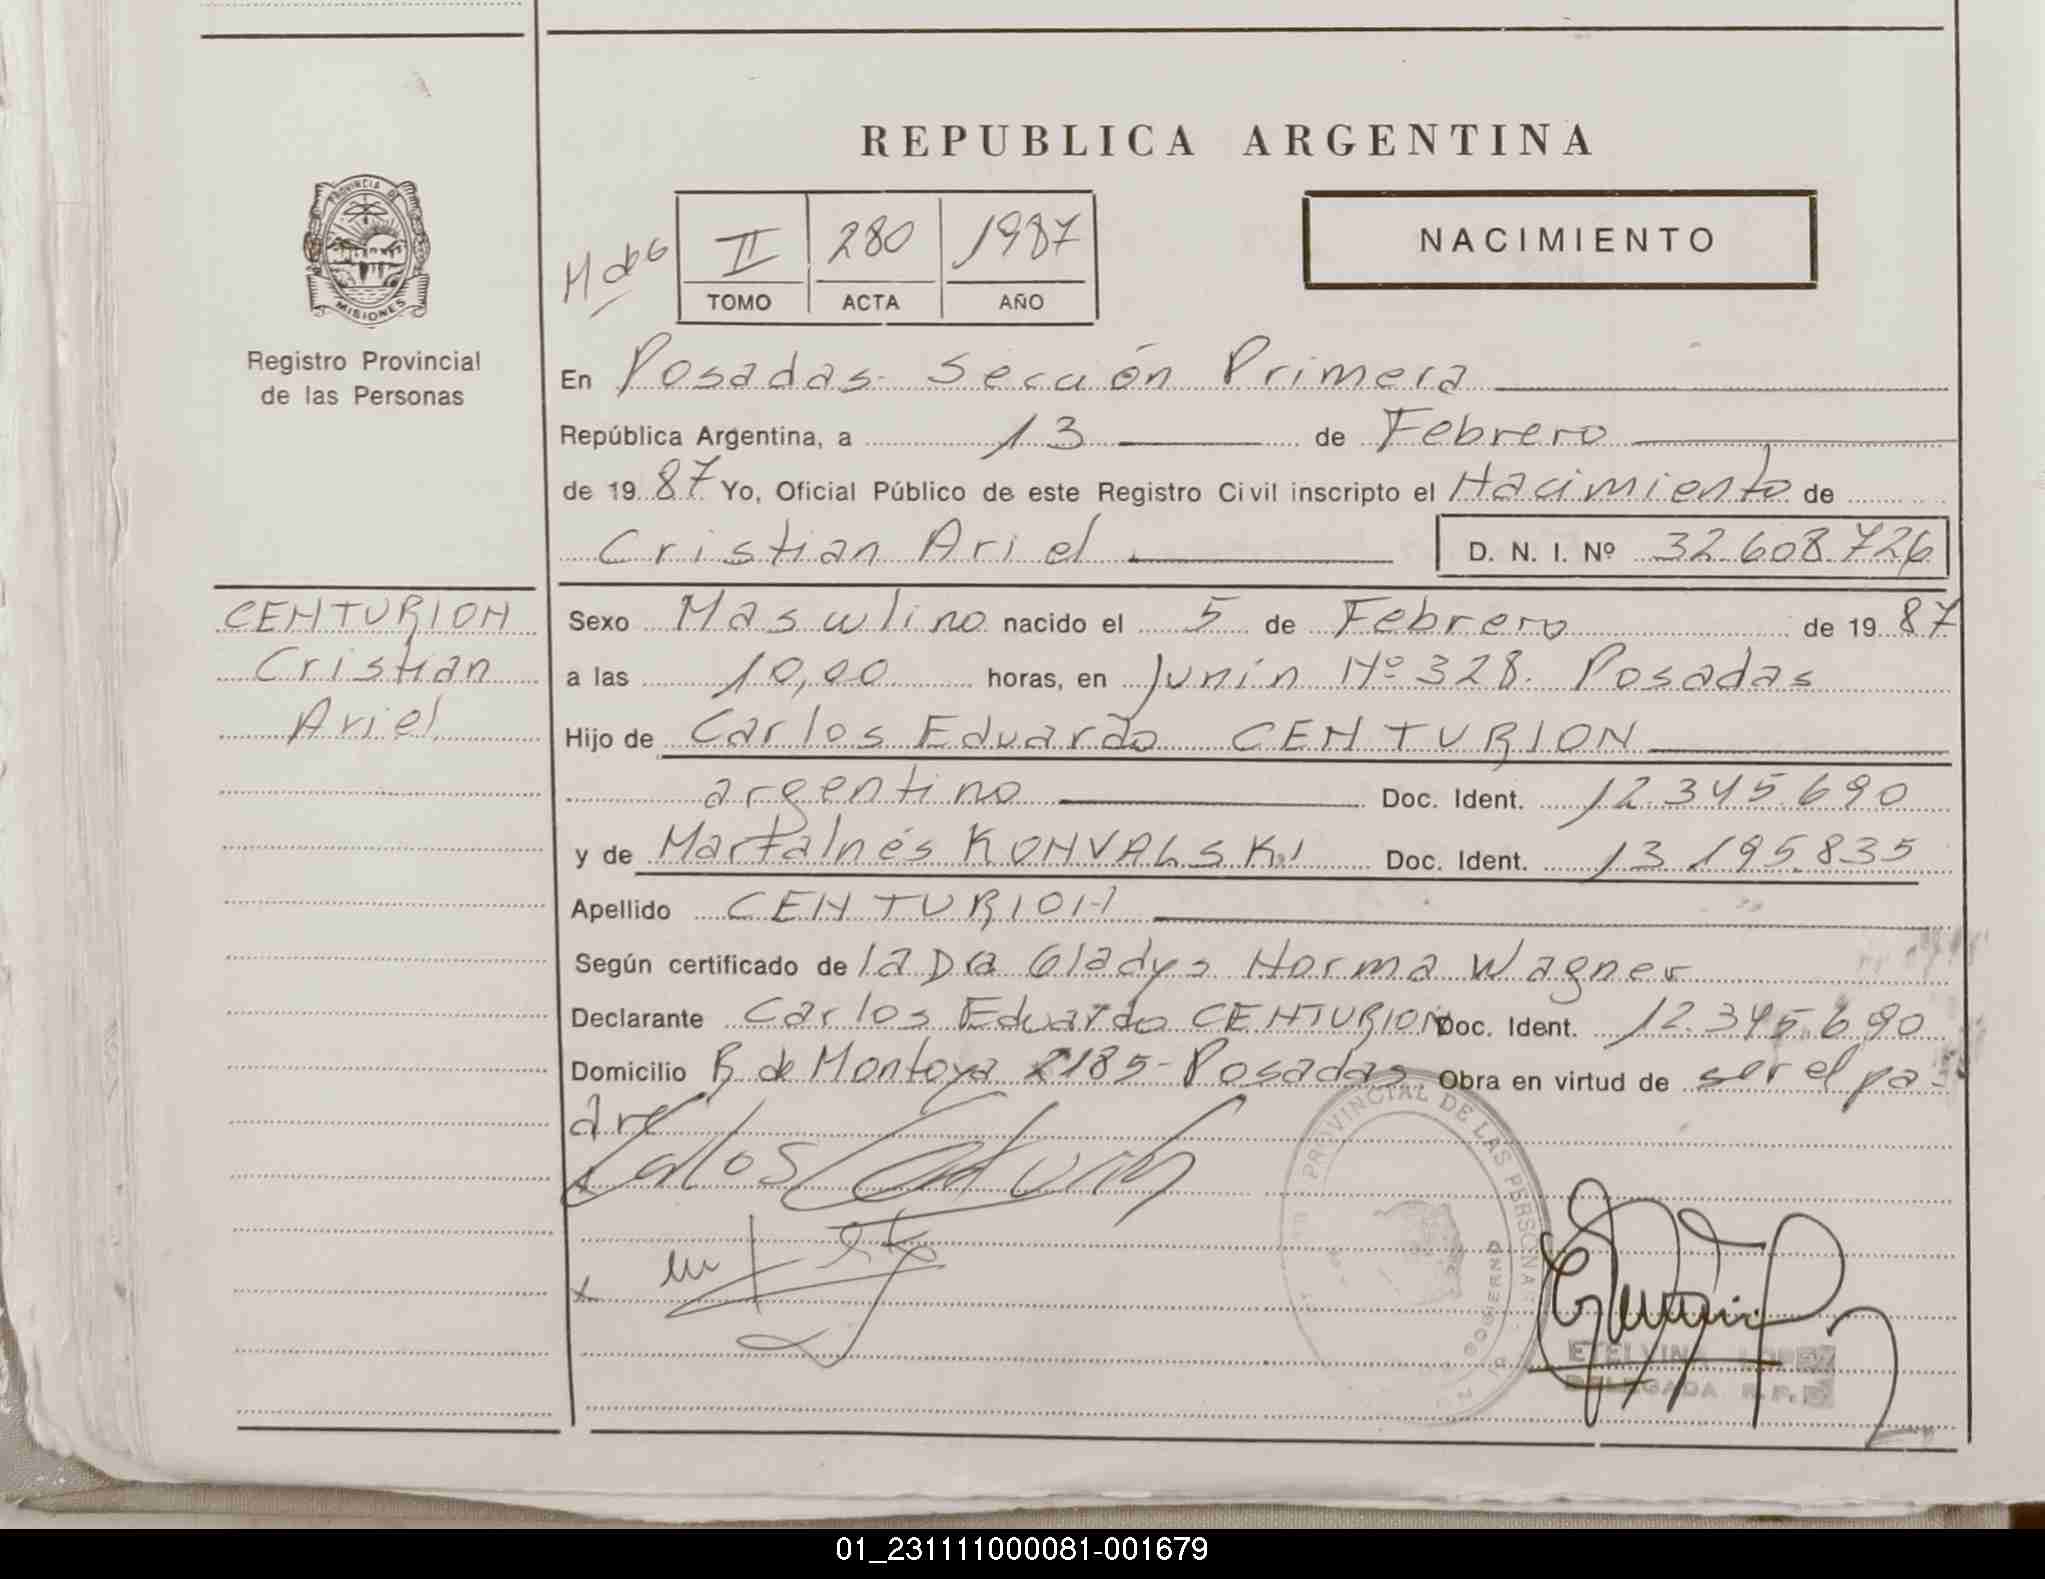 REPUBLICA ARGENTINA
PROVINCIA DE MISIONES
Registro Provincial
de las Personas
II 280 1987
TOMO ACTA AÑO
NACIMIENTO
En Posadas - Sección Primera
República Argentina, a 13 de Febrero
de 1987 Yo, Oficial Público de este Registro Civil inscripto el Nacimiento de
Cristian Ariel D. N. I. Nº 32.608.726
CENTURION
Cristian
Ariel
Sexo Masculino nacido el 5 de Febrero de 1987
a las 10,00 horas, en Junín Nº 328. Posadas
Hijo de Carlos Eduardo CENTURION
argentino Doc. Ident. 12.345.690
y de Marta Inés KONVALSKI Doc. Ident. 13.195.835
Apellido CENTURION
Según certificado de la Dra Gladys Norma Wagner
Declarante Carlos Eduardo CENTURION Doc. Ident. 12.345.690
Domicilio R. de Montoya 2185 - Posadas Obra en virtud de ser el pa-
dre
PROVINCIAL DE LAS PERSONAS
GOBIERNO
ETELVINA LOPEZ
DELEGADA R. P. P.
01_231111000081-001679